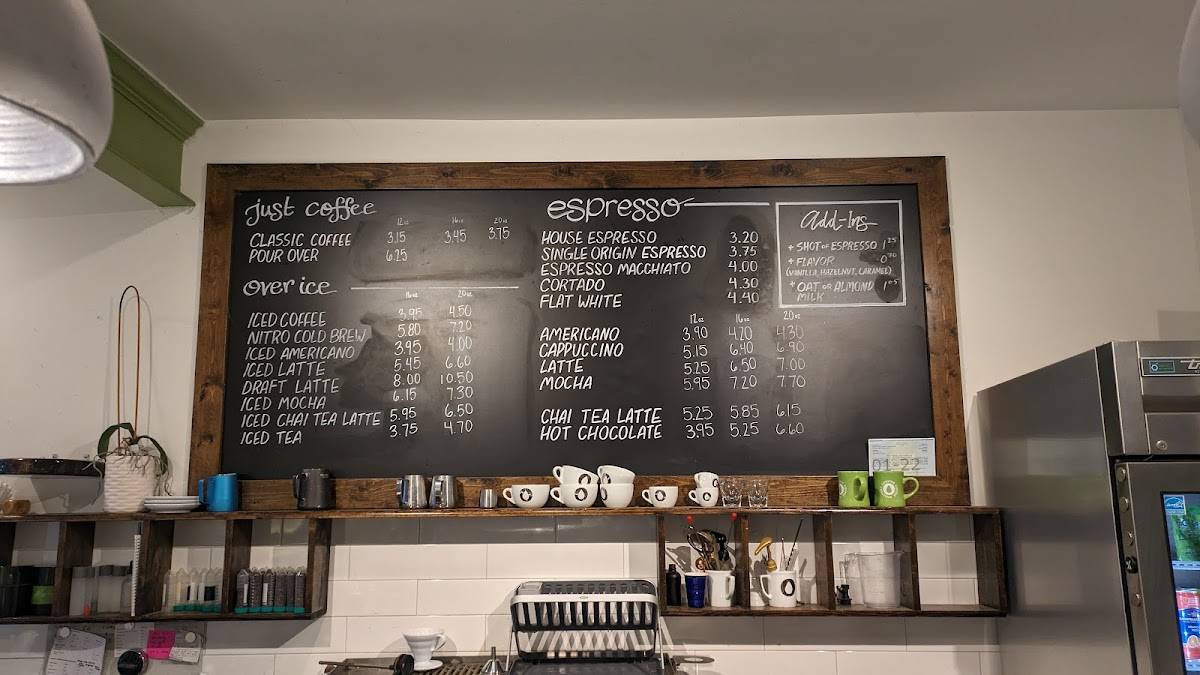 just coffee
12oz 16oz 20oz
CLASSIC COFFEE 3.15 3.45 3.75
POUR OVER 6.25
over ice
16oz 20oz
ICED COFFEE 3.95 4.50
NITRO COLD BREW 5.80 7.20
ICED AMERICANO 3.95 4.00
ICED LATTE 5.45 6.60
DRAFT LATTE 8.00 10.50
ICED MOCHA 6.15 7.30
ICED CHAI TEA LATTE 5.95 6.50
ICED TEA 3.75 4.70
espresso
HOUSE ESPRESSO 3.20
SINGLE ORIGIN ESPRESSO 3.75
ESPRESSO MACCHIATO 4.00
CORTADO 4.30
FLAT WHITE 4.40
12oz 16oz 20oz
AMERICANO 3.90 4.20 4.30
CAPPUCCINO 5.15 6.40 6.90
LATTE 5.25 6.50 7.00
MOCHA 5.95 7.20 7.70
CHAI TEA LATTE 5.25 5.85 6.15
HOT CHOCOLATE 3.95 5.25 6.60
Add-Ins
+ SHOT OF ESPRESSO 1.25
+ FLAVOR 0.70
(VANILLA, HAZELNUT, CARAMEL)
+ OAT OR ALMOND 1.05
MILK
01 22